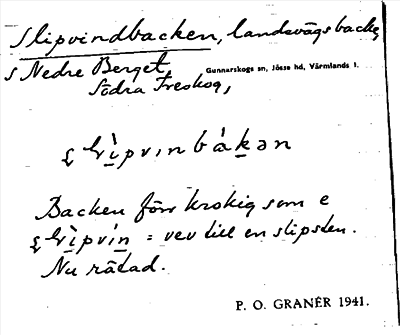 Slipvindbacken, landsvägsbacke
s Nedre Berget, Gunnarskogs sn, Jösse hd, Värmlands l.
Södra Treskog,
Backen förr krokig som e
= vev till en slipsten.
Nu rätad.
P. O. GRANÉR 1941.